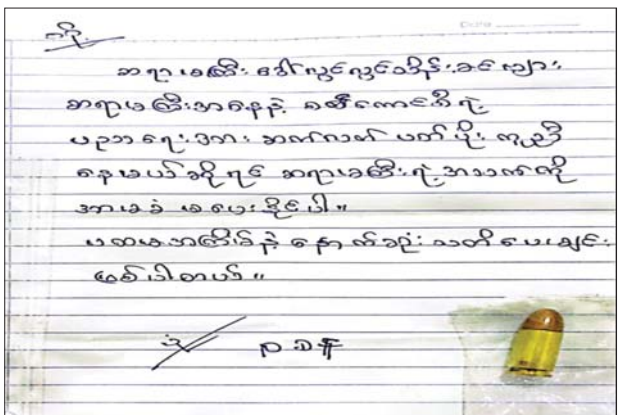 သို့
ဆရာမကြီး ဒေါ်လွင်လွင်သိန်း ခင်ဗျား
ဆရာမကြီးအနေနဲ့ စစ်ကောင်စီရဲ့
ပညာရေးအား ဆက်လက် ပတ်ပိုး ကူညီ
နေမယ်ဆိုရင် ဆရာမကြီးရဲ့ အသက်ကို
အာမခံ မပေးနိုင်ပါ။
ပထမအကြိမ်နဲ့ နောက်ဆုံး သတိပေးချင်း
ဖြစ်ပါတယ်။
ပုံ